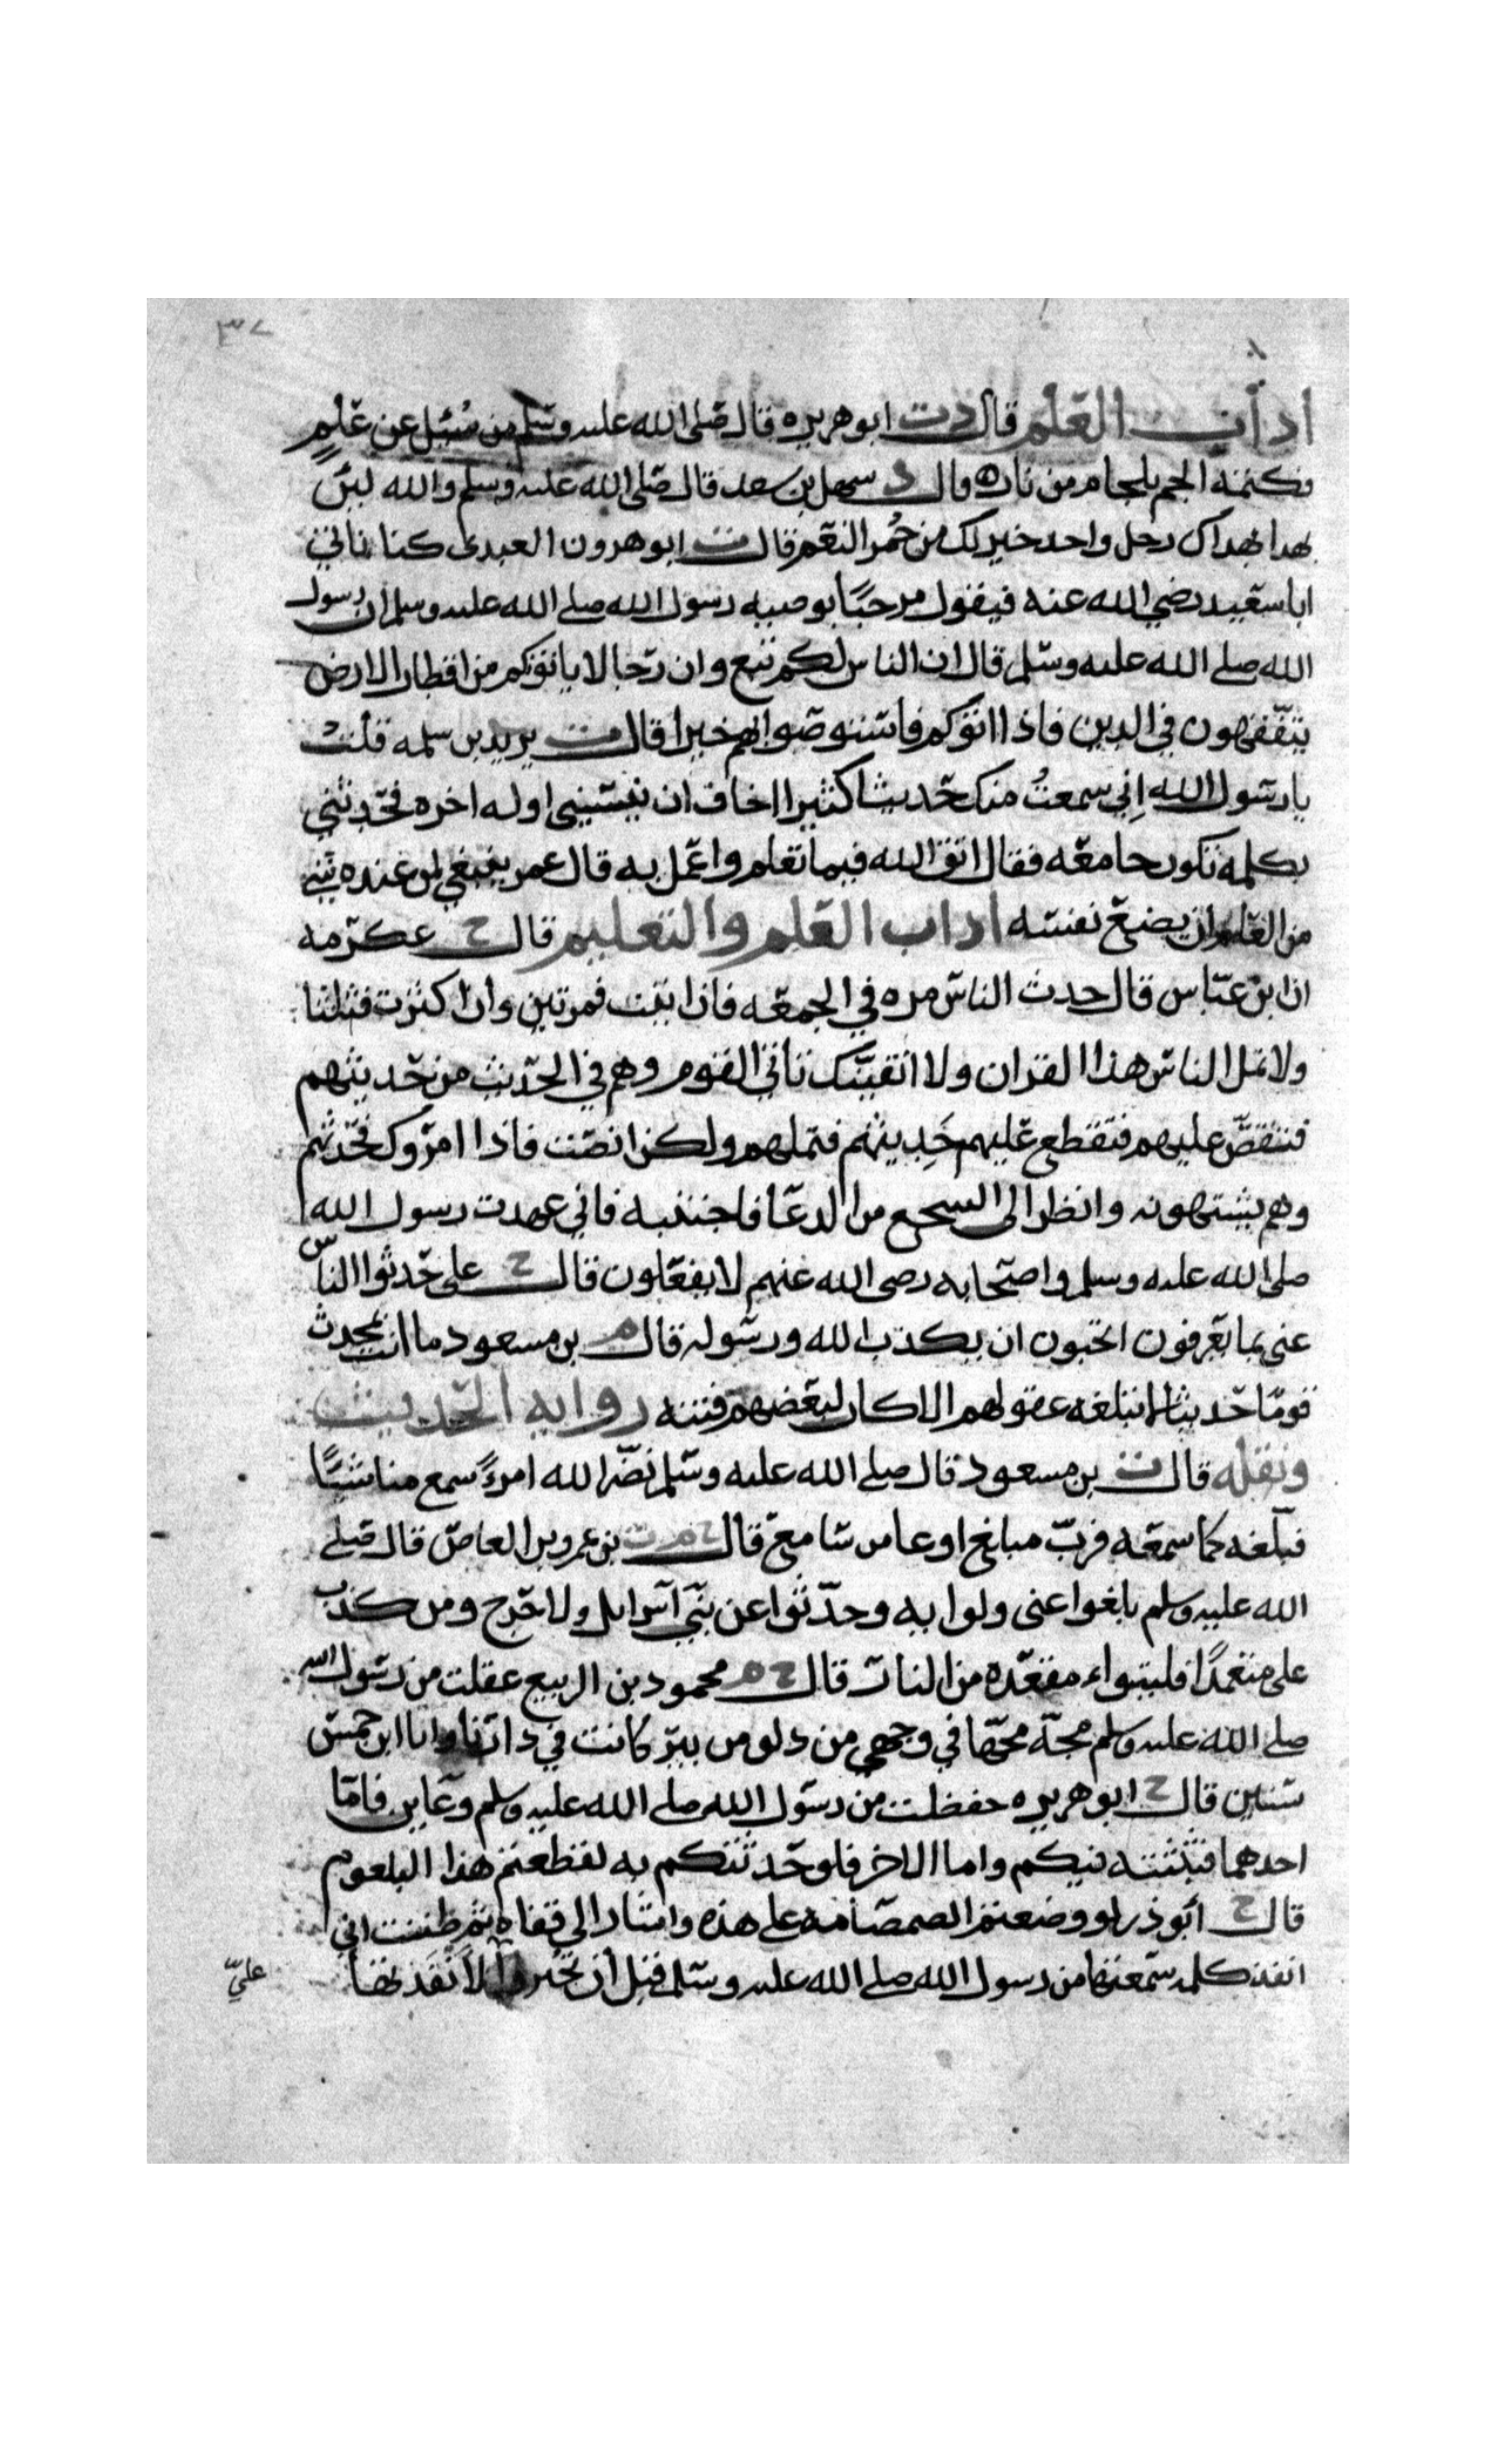 ٣٧
اداب العلم قال دت ابو هريره قال صلى الله عليه وسلم من سُئِل عن عَلمٍ
فكتمه الجم بلجام من نار ه وال د سهل بن سعد قال صلى الله عليه وسلم والله لين
بهدا بهداك رجل واحد خير لك من حُمُر النعم قال ت ابو هرون العبدي كنا ناتي
ابا سعيد رضي الله عنه فيقول مرحبًا بوصيه رسول الله صلى الله عليه وسلم ان رسول
الله صلى الله عليه وسلم قال ان الناس لكم تبع وان رجالا ياتوكم من اقطار الارض
يتفقهون في الدين فاذا اتوكم فاستوصوا بهم خيرا قال مت يريد بن سلمه قلت
يا رسول الله اِني سمعتُ منك حديثا كثيرا اخاف ان ينسيني اوله اخره فحدثني
بكلمه تكون جامعه فقال اتق الله فيما تعلم واعمل به قال عمر ينبغي لمن عنده شي
من العلم ان يضيع نفسه اداب العلم والتعليم قال ح عكرمه
ان ابن عباس قال حدث الناس مره في الجمعه فاذا بيت فمرتين وان اكثرت فثلثا
ولا تمل الناس هذا القران ولا القينك تاتي القوم وهم في الحديث من حديثهم
فتقص عليهم فتقطع عليهم حَديثهم فتملهم ولكن انصت فاذا امروك فحدثهم
وهم يشتهونه وانظر الى السجع من الدعا فاجتنبه فاني عهدت رسول الله
صلى الله عليه وسلم واصحابه رضى الله عنهم لا يفعلون قال ح على حدثوا الناس
عنى بما يعرفون اتحبون ان يكذب الله ورسوله قال م بن مسعود ما انت بمحدث
قومًا حديثا لم تبلغه عقولهم الا كان لبعضهم فتنه روايه الحديث
ونقله قال ت بن مسعود قال صلى الله عليه وسلم نضّر الله امرءً سمع منا شيًا
فبلغه كما سمعه فربّ مبلغ اوعا من سامع قال ح م ت بن عمرو بن العاص قال صلى
الله عليه وسلم بلغوا عنى ولو ايه وحدّثوا عن بني اسرايل ولا حرج ومن كذب
على متعمدًا فليتبواء مقعده من النار قال ح م محمود بن الربيع عقلت من رسول الله
صلى الله عليه وسلم مجة مجّها في وجهي من دلو من بير كانت في دارنا وانا ابن خمس
سنين قال ح ابو هريره حفظت من رسول الله صلى الله عليه وسلم وعاين فامّا
احدهما فبثثته فيكم واما الاخر فلو حدثتكم به لقطعتم هذا البلعوم
قال ح ابو ذر لو وضعتم الصمصامه على هذه واشار الى قفاه ثم ظننت اني
انفذ كلمه سمعتها من رسول الله صلى الله عليه وسلم قبل ان تجيزوا لاَنفَذتها
عليّ